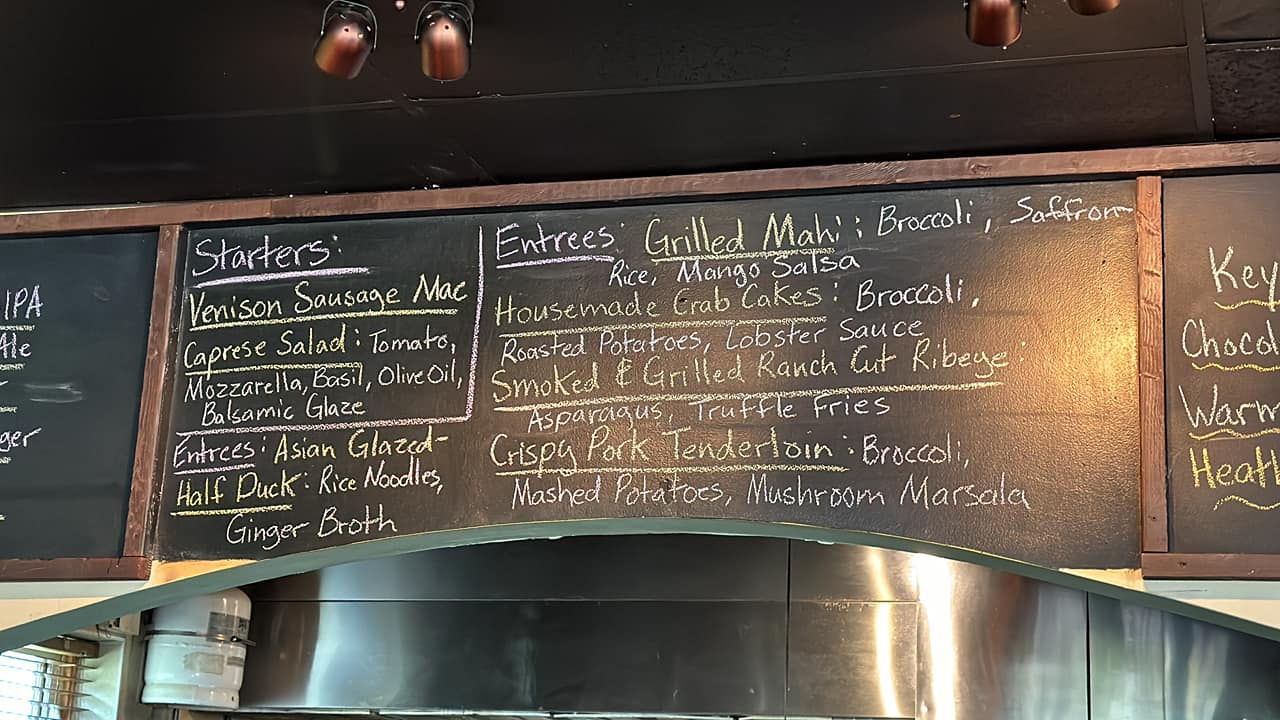 IPA
Ale
Starters:
Venison Sausage Mac
Caprese Salad: Tomato,
Mozzarella, Basil, Olive Oil,
Balsamic Glaze
Entrees: Asian Glazed-
Half Duck: Rice Noodles,
Ginger Broth
Entrees: Grilled Mahi: Broccoli, Saffron
Rice, Mango Salsa
Housemade Crab Cakes: Broccoli,
Roasted Potatoes, Lobster Sauce
Smoked & Grilled Ranch Cut Ribeye:
Asparagus, Truffle Fries
Crispy Pork Tenderloin: Broccoli,
Mashed Potatoes, Mushroom Marsala
Key
Chocol
Warm
Heath